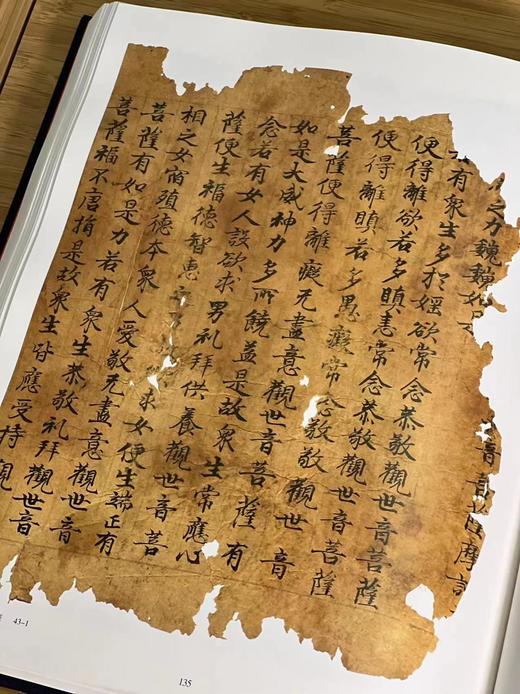 之力巍巍如
音菩薩摩訶
有衆生多於婬欲常念恭敬觀世音菩薩
便得離欲若多瞋恚常念恭敬觀世音菩薩
便得離瞋若多愚癡常念敬敬觀世音
菩薩便得離癡无盡意觀世音菩薩有
如是大威神力多所饒益是故衆生常應心
念若有女人設欲求男礼拜供養觀世音菩
薩便生福德智惠求女便生端正有
相之女宿殖德本衆人愛敬无盡意觀世音
菩薩有如是力若有衆生恭敬礼拜觀世音
菩薩福不唐捐是故衆生皆應受持觀
43-1
135